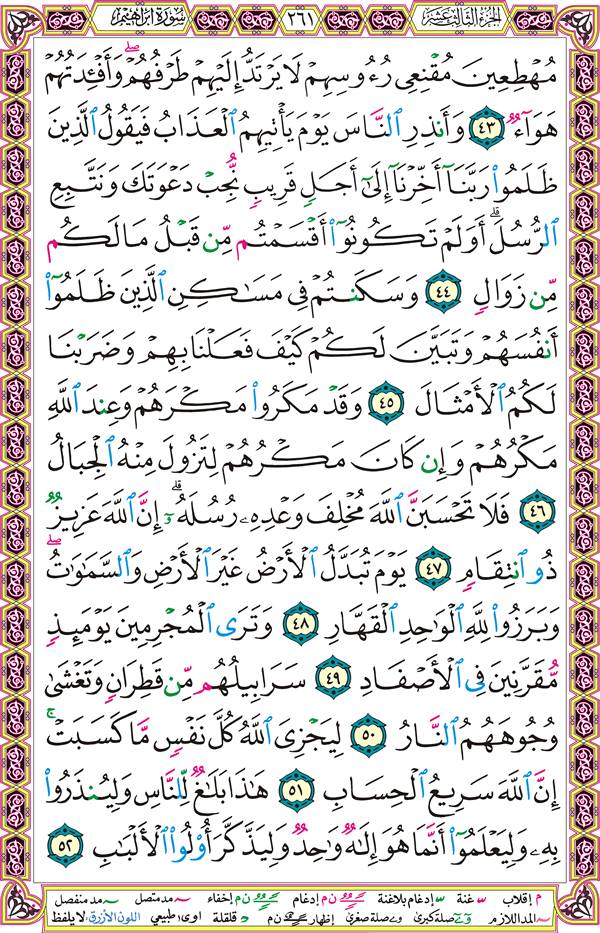 الجزء الثالث عشر ٢٦١ سورة ابراهيم
مُهْطِعِينَ مُقْنِعِى رُءُوسِهِمْ لَا يَرْتَدُّ إِلَيْهِمْ طَرْفُهُمْ ۖ وَأَفْـِٔدَتُهُمْ
هَوَآءٌ ٤٣ وَأَنذِرِ ٱلنَّاسَ يَوْمَ يَأْتِيهِمُ ٱلْعَذَابُ فَيَقُولُ ٱلَّذِينَ
ظَلَمُوا۟ رَبَّنَآ أَخِّرْنَآ إِلَىٰٓ أَجَلٍ قَرِيبٍ نُّجِبْ دَعْوَتَكَ وَنَتَّبِعِ
ٱلرُّسُلَ ۗ أَوَلَمْ تَكُونُوٓا۟ أَقْسَمْتُم مِّن قَبْلُ مَا لَكُم
مِّن زَوَالٍ ٤٤ وَسَكَنتُمْ فِى مَسَـٰكِنِ ٱلَّذِينَ ظَلَمُوٓا۟
أَنفُسَهُمْ وَتَبَيَّنَ لَكُمْ كَيْفَ فَعَلْنَا بِهِمْ وَضَرَبْنَا
لَكُمُ ٱلْأَمْثَالَ ٤٥ وَقَدْ مَكَرُوا۟ مَكْرَهُمْ وَعِندَ ٱللَّهِ
مَكْرُهُمْ وَإِن كَانَ مَكْرُهُمْ لِتَزُولَ مِنْهُ ٱلْجِبَالُ
٤٦ فَلَا تَحْسَبَنَّ ٱللَّهَ مُخْلِفَ وَعْدِهِۦ رُسُلَهُۥٓ ۗ إِنَّ ٱللَّهَ عَزِيزٌ
ذُو ٱنتِقَامٍ ٤٧ يَوْمَ تُبَدَّلُ ٱلْأَرْضُ غَيْرَ ٱلْأَرْضِ وَٱلسَّمَـٰوَٰتُ ۖ
وَبَرَزُوا۟ لِلَّهِ ٱلْوَٰحِدِ ٱلْقَهَّارِ ٤٨ وَتَرَى ٱلْمُجْرِمِينَ يَوْمَئِذٍ
مُّقَرَّنِينَ فِى ٱلْأَصْفَادِ ٤٩ سَرَابِيلُهُم مِّن قَطِرَانٍ وَتَغْشَىٰ
وُجُوهَهُمُ ٱلنَّارُ ٥٠ لِيَجْزِىَ ٱللَّهُ كُلَّ نَفْسٍ مَّا كَسَبَتْ ۚ
إِنَّ ٱللَّهَ سَرِيعُ ٱلْحِسَابِ ٥١ هَـٰذَا بَلَـٰغٌ لِّلنَّاسِ وَلِيُنذَرُوا۟
بِهِۦ وَلِيَعْلَمُوٓا۟ أَنَّمَا هُوَ إِلَـٰهٌ وَٰحِدٌ وَلِيَذَّكَّرَ أُو۟لُوا۟ ٱلْأَلْبَـٰبِ ٥٢
م إقلاب غنة إدغام بلاغنة ن م إدغام إخفاء مد متصل مد منفصل
المد اللازم صلة كبرى صلة صغرى إظهار ن م قلقلة اوى طبيعي اللون الأزرق لا يلفظ